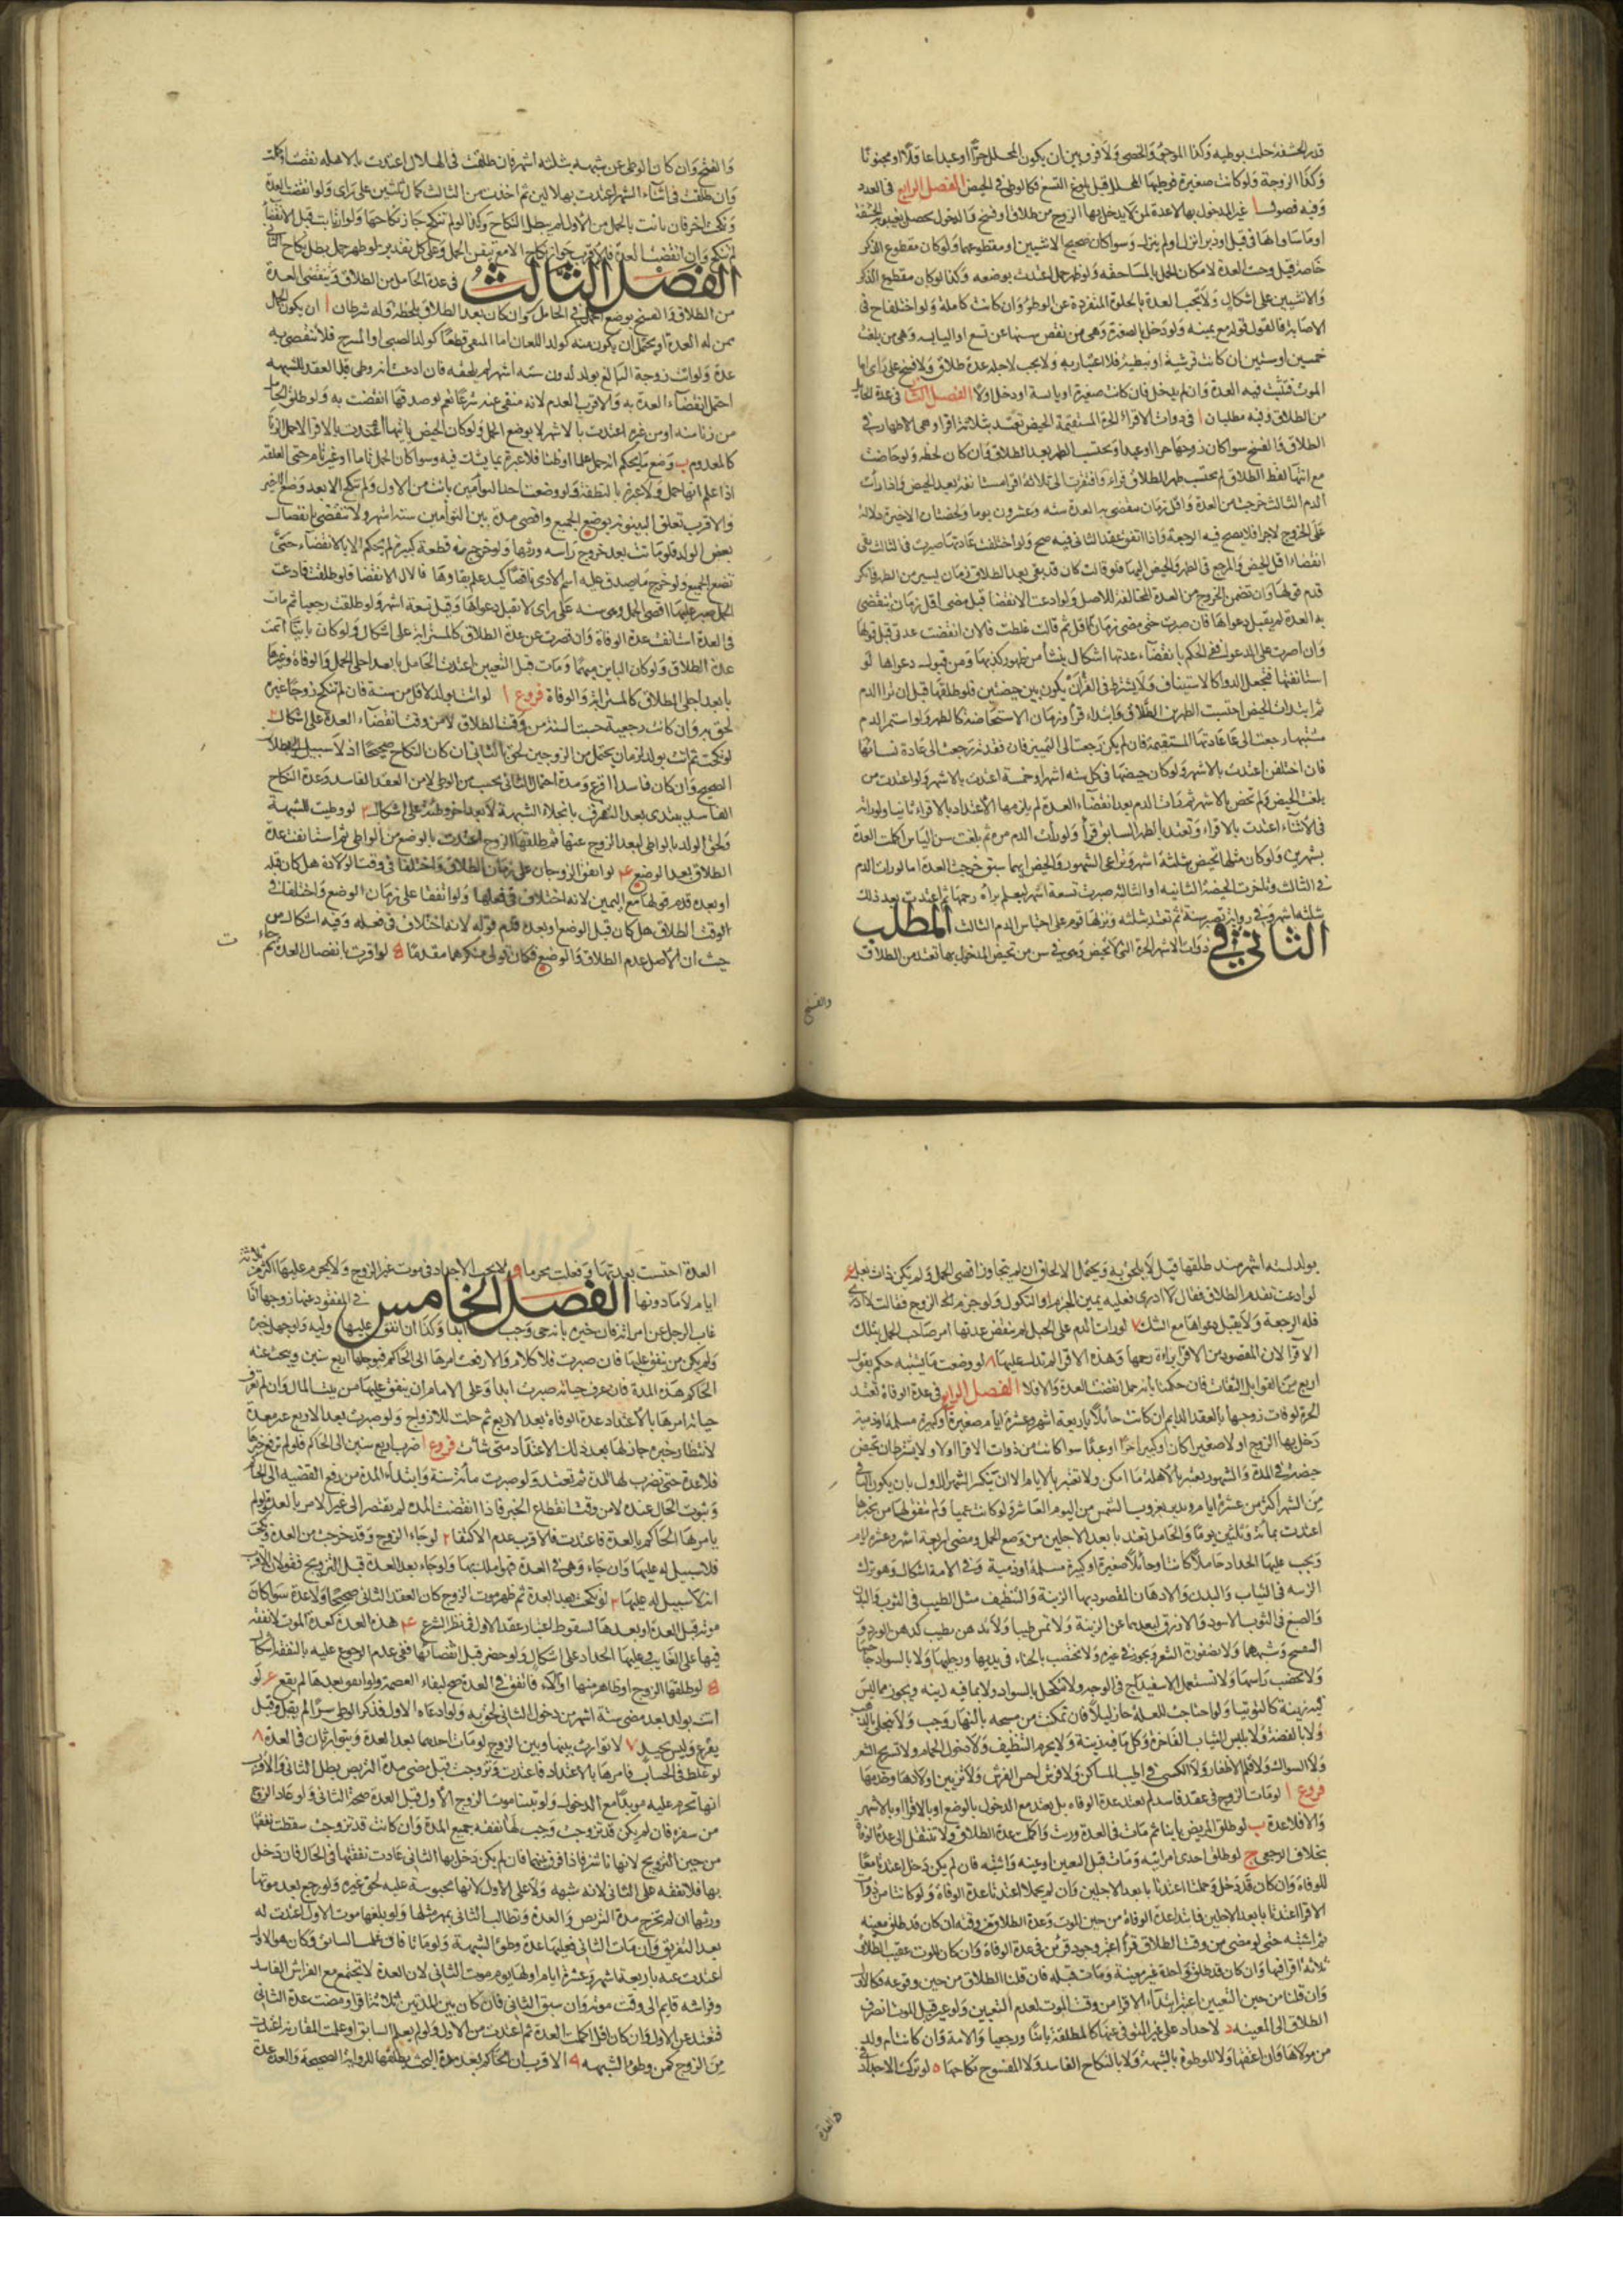 قدر الحشفة حلت بوطيه وكذا الموجوء والخصي ولا فرق بين ان يكون المحلل حرا او عبدا عاقلا او مجنونا
وكذا الزوجة ولو كانت صغيرة فوطيها المحلل قبل بلوغ التسع فكالوطي في الحيض الفصل الرابع في العدد
وفيه فصول ا غير المدخول بها لا عدة لمن لا يدخل بها الزوج من طلاق او فسخ والدخول يحصل بغيبوبة الحشفة
او ما ساواها في قبل او دبر انزل او لم ينزل وسواء كان صحيح الانثيين او مقطوعهما ولو كان مقطوع الذكر
خاصة قيل وجبت العدة لامكان الحمل بالمساحقة ولو ظهر حمل اعتدت بوضعه وكذا لو كان مقطوع الذكر
والانثيين على اشكال ولا تجب العدة بالخلوة المنفردة عن الوطي وان كانت كاملة ولو اختلفا في
الاصابة فالقول قوله مع يمينه ولو دخل بالصغيرة وهي من نقص سنها عن تسع او اليائسة وهي من بلغت
خمسين او ستين ان كانت قرشية او نبطية فلا اعتبار به ولا يجب لاجله عدة طلاق ولا فسخ على راي اما
الموت فتثبت فيه العدة وان لم يدخل وان كانت صغيرة او يائسة او دخل ولا الفصل الثاني في عدة الحايل
من الطلاق وفيه مطلبان ا في ذوات الاقراء الحرة المستقيمة الحيض تعتد بثلاثة اقراء وهي الاطهار في
الطلاق والفسخ سواء كان زوجها حرا او عبدا وتحتسب بالطهر بعد الطلاق وان كان لحظة ولو حاضت
مع انتهاء لفظ الطلاق لم يحتسب طهر الطلاق قرءا وافتقرت الى ثلاثة اقراء مستانفة بعد الحيض واذا رات
الدم الثالث خرجت من العدة واقل زمان تنقضي به العدة ستة وعشرون يوما ولحظتان الاخيرة دلالة
على الخروج لا جزء فلا يصح فيه الرجعة واذا اتفق عقد الثاني فيه صح ولو اختلفت عادتها صبرت في الثالث الى
انقضاء اقل الحيض والمرجع في الطهر والحيض اليها فلو قالت كان قد بقي بعد الطلاق زمان يسير من الطهر فانكر
قدم قولها وان تضمن الخروج من العدة المخالفة للاصل ولو ادعت الانقضاء قبل مضي اقل زمان تنقضي
به العدة لم يقبل دعواها فان صبرت حتى مضى زمان الاقل ثم قالت غلطت والان انقضت عدتي قبل قولها
وان اصرت على الدعوى ففي الحكم بانقضاء عدتها اشكال ينشأ من ظهور كذبها ومن قبول دعواها لو
استانفتها فتجعل الدوام كالاستيناف ولا يشترط في القرء ان يكون بين حيضتين فلو طلقها قبل ان ترا الدم
ثم ابتدات بالحيض احتسبت الطهر بين الطلاق وابتداء قرأ وزمان الاستحاضة كالطهر ولو استمر الدم
مشتبها رجعت الى عادتها المستقيمة فان لم يكن رجعت الى التمييز فان فقدته رجعت الى عادة نسائها
فان اختلفن اعتدت بالاشهر ولو كان حيضها في كل ستة اشهر او خمسة اعتدت بالاشهر ولو اعتدت من
بلغت الحيض ولم تحض بالاشهر ثم رات الدم بعد انقضاء العدة لم يلزمها الاعتداد بالاقراء ثانيا ولو راته
في الاثناء اعتدت بالاقراء وتعتد بالطهر السابق قرأ ولو رات الدم مرة ثم بلغت سن الياس اكملت العدة
بشهرين ولو كان مثلها تحيض بثلثة اشهر وتراعي الشهور والحيض ايهما سبق خرجت العدة اما لو رات الدم
في الثالث وتاخرت الحيضة الثانية او الثالثة صبرت تسعة اشهر ليعلم براءة رحمها ثم اعتدت بعد ذلك
بثلثة اشهر وفي رواية تصبر سنة ثم تعتد بثلثة ونزلها قوم على احتباس الدم الثالث المطلب
الثاني في ذوات الاشهر الحرة التي لا تحيض وهي في سن من تحيض المدخول بها تعتد من الطلاق
والفسخ
والفسخ وان كان الوطي عن شبهة بثلثة اشهر فان طلقت في الهلال اعتدت بالاهلة نقصت او كملت
وان طلقت في اثناء الشهر اعتدت بهلالين ثم اخذت من الثالث كمال ثلثين على راي ولو انقضت العدة
ونكحت اخر فان بانت بالحمل من الاول لم يبطل النكاح وكذا لو لم تنكح جاز نكاحها ولو ارتابت قبل الانقضاء
لم تنكح وان انقضت العدة والاقرب جواز نكاحها الا مع تيقن الحمل وعلى كل تقدير لو ظهر حمل بطل نكاح الثاني
الفصل الثالث في عدة الحامل من الطلاق وتنقضي العدة
من الطلاق والفسخ بوضع الحمل في الحامل وان كان بعد الطلاق بلحظة وله شرطان ا ان يكون الحمل
ممن له العدة او يحتمل ان يكون منه كولد اللعان اما المنفي قطعا كولد الصبي او المسرح فلا تنقضي به
عدة ولو اتت زوجة البالغ بولد لدون ستة اشهر لم يلحقه فان ادعت انه وطي قبل العقد للشبهة
احتمل انقضاء العدة به والاقرب العدم لانه منفي عنه شرعا نعم لو صدقها انقضت به ولو طلق الحامل
من زنا منه او من غيره اعتدت بالاشهر لا بوضع الحمل ولو كان الحيض ياتيها اعتدت بالاقراء لان حمل الزنا
كالمعدوم ب وضع ما يحكم انه حمل علما او ظنا فلا عبرة بما يشك فيه وسواء كان الحمل تاما او غير تام حتى العلقة
اذا علم انها حمل ولا عبرة بالنطفة ولو وضعت احد التوامين بانت من الاول ولم تنكح الا بعد وضع الاخير
والاقرب تعلق البينونة بوضع الجميع واقصى مدة بين التوامين ستة اشهر ولا تنقضي بانفصال
بعض الولد فلو ماتت بعد خروج راسه ورثها ولو خرج منه قطعة كبيرة لم يحكم الا بالانقضاء حتى
تضع الجميع ولو خرج ما يصدق عليه اسم الادمي ناقصا كيد علم بقاوها فالاقرب الانقضاء فلو طلقت فادعت
الحمل صبر عليها اقصى الحمل وهي سنة على راي لا تقبل دعواها وقيل تسعة اشهر ولو طلقت رجعيا ثم مات
في العدة استانفت عدة الوفاة وان قصرت عن عدة الطلاق كالمسترابة على اشكال ولو كان باينا اتمت
عدة الطلاق ولو كان الباين مبهما ومات قبل التعيين اعتدت الحامل بابعد اجلي الحمل والوفاة وغيرها
بابعد اجلي الطلاق كالمسترابة والوفاة فروع ا لو اتت بولد لاقل من سنة فان لم تنكح زوجا غيره
لحق به وان كانت رجعية حسبت السنة من وقت الطلاق لا من وقت انقضاء العدة على اشكال ٢
لو نكحت ثم اتت بولد لزمان يحتمل من الزوجين لحق بالثاني ان كان النكاح صحيحا اذ لا سبيل الى ابطال
الصحيح وان كان فاسدا اقرع ومدة احتمال الثاني يحسب من الوطي لا من العقد الفاسد وعدة النكاح
الفاسد يبتدي بعد التفرق بانجلاء الشبهة لا بعد اخر وطئه على اشكال ٣ لو وطيت للشبهة
ولحق الولد بالواطي لبعد الزوج عنها ثم طلقها الزوج اعتدت بالوضع من الواطي ثم استانفت عدة
الطلاق بعد الوضع ۴ لو اتفق الزوجان على زمان الطلاق واختلفا في وقت الولادة هل كان قبله
او بعده قدم قولها مع اليمين لانه اختلاف في فعلها ولو اتفقا على زمان الوضع واختلفا في
الوقت الطلاق هل كان قبل الوضع او بعده قدم قوله لانه اختلاف في فعله وفيه اشكال من
حيث ان الاصل عدم الطلاق والوضع فكان قولي منكرهما مقدما ۵ لو اقرت بانفصال العدة ثم جاءت
بولد لستة اشهر منذ طلقها قيل لا يلحق به ويحتمل الالحاق ان لم يتجاوز اقصى الحمل ولم يكن ذات بعل ٦
لو ادعت تقدم الطلاق فقال لا ادري فعليه يمين الجزم او النكول ولو جزم الزوج فقالت لا ادري
فله الرجعة ولا يقبل دعواها مع الشك ٧ لو رات الدم على الحبل لم تنقض عدتها امر صاحب الحمل بتلك
الاقراء لان المقصود من الاقراء براءة رحمها وهذه الاقراء لم تدل عليها ٨ لو وضعت ما يشتبه حكم بقول
اربع من القوابل الثقات فان حكمن بانه حمل انقضت العدة والا فلا الفصل الرابع في عدة الوفاة تعتد
الحرة لوفات زوجها بالعقد الدايم ان كانت حائلا باربعة اشهر وعشرة ايام صغيرة او كبيرة مسلمة او ذمية
دخل بها الزوج او لا صغيرا كان او كبيرا حرا او عبدا سواء كانت من ذوات الاقراء او لا ولا يشترط ان تحيض
حيضة في المدة والشهور يعتبر بالاهلة ما امكن ولا تعتبر بالايام الا ان ينكسر الشهر الاول بان يكون الباقي
من الشهر اكثر من عشرة ايام وتبين بغروب الشمس من اليوم العاشر ولو كانت عمياء ولم تتفق لها من يخبرها
اعتدت بمائة وثلثين يوما والحامل تعتد بابعد الاجلين من وضع الحمل ومضي اربعة اشهر وعشرة ايام
ويجب عليها الحداد حاملا كانت او حائلا صغيرة او كبيرة مسلمة او ذمية وفي الامة اشكال وهو ترك
الزينة في الثياب والبدن والادهان المقصود بها الزينة والتنظيف مثل الطيب في الثوب والبدن
والصبغ في الثوب الاسود والازرق لبعدهما عن الزينة ولا تمس طيبا ولا تدهن بطيب كدهن الورد و
البنفسج وشبههما ولا بضفورة الشعر ويجوز في غيره ولا تختضب بالحناء في يديها ورجليها ولا بالسواد حاجبها
ولا تخضب راسها ولا تستعمل الاسفيداج في الوجه ولا تكتحل بالسواد ولا بما فيه زينه ويجوز مما ليس
فيه زينة كالتوتيا ولو احتاجت للعلة جاز ليلا فان تمكنت من مسحه بالنهار وجب ولا تتحلى بالذهب
ولا بالفضة ولا بلبس الثياب الفاخرة وكل ما فيه زينة ولا يحرم التنظيف ولا دخول الحمام ولا تسريح الشعر
ولا السواك ولا قلم الاظفار ولا السكنى في اطيب المساكن ولا فرش احسن الفرش ولا تزيين اولادها وخدمها
فروع ا لو مات الزوج في عقد فاسد لم تعتد عدة الوفاء بل يعتد مع الدخول بالوضع او بالاقراء او بالاشهر
والا فلا عدة ب لو طلق المريض باينا ثم مات في العدة ورثت واكملت عدة الطلاق ولا تنتقل الى عدة الوفاة
بخلاف الرجعي ج لو طلق احدى امراتيه ومات قبل التعيين او عينه واشتبه فان لم يكن دخل اعتدتا معا
للوفاة وان كان قد دخل وحملتا اعتدتا بابعد الاجلين وان لم يحملا اعتدتا عدة الوفاة ولو كانتا من ذوات
الاقراء اعتدتا بابعد الاجلين فابتداء عدة الوفاة من حين الموت وعدة الطلاق من وقته ان كان قد طلق معينه
ثم اشتبه حتى لو مضى من وقت الطلاق قرأ اعتبر وجود قرئين في عدة الوفاة وان كان الموت عقيب الطلاق
ثلاثة اقراء فيها وان كان قد طلق واحدة غير معينة ومات قبله فان قلنا الطلاق من حين وقوعه فكالاول
وان قلنا من حين التعيين اعتبر ابتداء الاقراء من وقت الموت لعدم التعيين ولو عين قبل الموت انصرف
الطلاق الى المعينه د لا حداد على غير المتوفى عنها كالمطلقة باينا ورجعيا والامة وان كانت ام ولد
من مولاها وان اعتقها ولا للموطوة بالشبهة ولا بالنكاح الفاسد ولا المفسوخ نكاحها ه لو تركت الاحداد في
العدة
العدة احتسبت بعدتها وفعلت محرما و لا يجب الاحداد في موت غير الزوج ولا يحرم عليها اكثر من ثلاثة
ايام لا مادونها الفصل الخامس في المفقود عنها زوجها اذا
غاب الرجل عن امراته فان خبره بانه حي وجب ابدا وكذا ان انفق عليها وليه ولو جهل خبره
ولم يكن من ينفق عليها فان صبرت فلا كلام والا رفعت امرها الى الحاكم فيؤجلها اربع سنين ويبحث عنه
الحاكم هذه المدة فان عرف حياته صبرت ابدا وعلى الامام ان ينفق عليها من بيت المال وان لم تعرف
حياته امرها بالاعتداد عدة الوفاة بعد الاربع ثم حلت للازواج ولو صبرت بعد الاربع غير معتدة
لانتظار خبره جاز لها بعد ذلك الاعتداد متى شات فروع ا ضرب اربع سنين الى الحاكم فلو لم ترفع خبرها
فلا عدة حتى تضرب لها المدة ثم تعتد ولو صبرت مائة سنة وابتداء المدة من رفع القضيه الى الحاكم
وثبوت الحال عنده لا من وقت انقطاع الخبر فاذا انقضت المدة لم يفتقر الى غير الامر بالعدة ولو لم
يامرها الحاكم بالعدة فاعتدت فالاقرب عدم الاكتفاء ٢ لو جاء الزوج وقد خرجت من العدة ونكحت
فلا سبيل له عليها وان جاء وهي في العدة فهو املك بها ولو جاء بعد العدة قبل التزويج فقولان الاقرب
انه لا سبيل له عليها ٣ لو نكحت بعد العدة ثم ظهر موت الزوج كان العقد الثاني صحيحا ولا عدة سواء كان
موته قبل العدة او بعدها لسقوط اعتبار عقد الاول في نظر الشرع ۴ هذه العدة كعدة الموت لا نفقة
فيها على الغايب وعليها الحداد على اشكال ولو حضر قبل انقضائها ففي عدم الرجوع عليه بالنفقة اشكال
۵ لو طلقها الزوج او ظاهر منها او آلا واتفق في العدة صح لبقاء العصمة ولو اتفق بعدها لم يقع ٦ لو
اتت بولد بعد مضي ستة اشهر من دخول الثاني لحق به ولو ادعاه الاول فذكر الوطي سرا لم يقبل وقيل
يقرع وليس بجيد ٧ لا توارث بينها وبين الزوج لو مات احدهما بعد العدة ويتوارثان في العدة ٨
لو غلط في الحساب فامرها بالاعتداد فاعتدت وتزوجت قبل مضي مدة التربص بطل الثاني والاقرب
انها تحرم عليه مؤبدا مع الدخول ولو تبينا موت الزوج الاول قبل العدة صح الثاني ولو عاد الزوج
من سفره فان لم يكن قد تزوجت وجب لها نفقة جميع المدة وان كانت قد تزوجت سقطت نفقتها
من حين التزويج لانها ناشز فاذا فرق بينهما فان لم يكن دخل بها الثاني عادت نفقتها في الحال فان دخل
بها فلا نفقة على الثاني لانه شبهه ولا على الاول لانها محبوسة عليه لحق غيره ولو رجع بعد موتها
ورثها ان لم تخرج مدة التربص والعدة وتطالب الثاني بمهر مثلها ولو بلغها موت الاول اعتدت له
بعد التفريق وان مات الثاني فعليها عدة وطي الشبهة ولو ماتا فان علم السابق وكان هو الاول
اعتدت عنه باربعة اشهر وعشرة ايام اولها يوم موت الثاني لان العدة لا تجتمع مع الفراش الفاسد
وفراشه قايم الى وقت موته وان سبق الثاني فان كان بين المدتين ثلاثة اقراء ومضت عدة الثاني
فتعتد عن الاول وان كان اقل اكملت العدة ثم اعتدت من الاول ولو لم يعلم السابق او علمت المقارنة اعتدت
من الزوج كمن وطئ الشبهه ٩ الاقرب ان الحاكم بعد مدة البحث يطلقها للرواية الصحيحة والعدة عدة